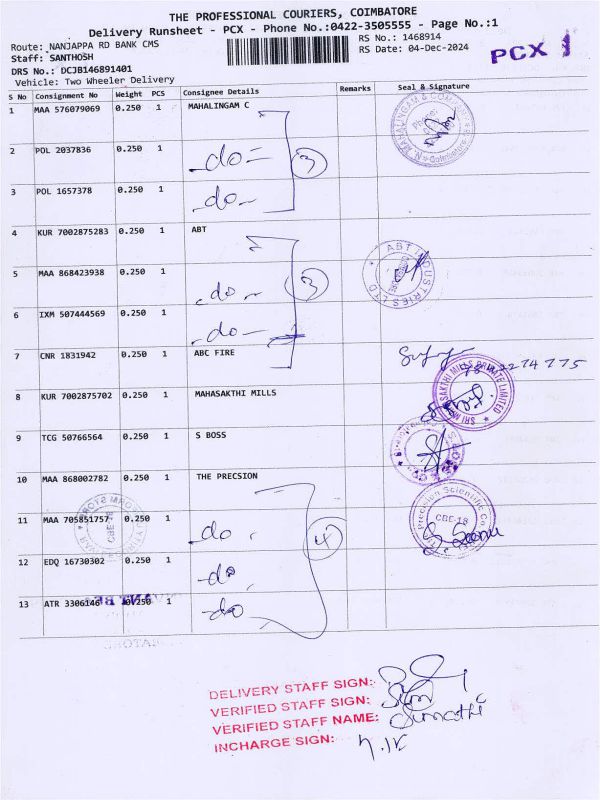 THE PROFESSIONAL COURIERS, COIMBATORE
Delivery Runsheet - PCX - Phone No.:0422-3505555 - Page No.:1
Route: NANJAPPA RD BANK CMS
RS No.: 1468914
Staff: SANTHOSH
RS Date: 04-Dec-2024
PCX 1
DRS No.: DCJB146891401
Vehicle: Two Wheeler Delivery
S No Consignment No Weight PCS Consignee Details Remarks Seal & Signature
1 MAA 576079069 0.250 1 MAHALINGAM C
2 POL 2037836 0.250 1 -do- 3
3 POL 1657378 0.250 1 -do-
4 KUR 7002875283 0.250 1 ABT
ABT INDUSTRIES LTD
5 MAA 868423938 0.250 1 -do- 3
6 IXM 507444569 0.250 1 -do-
7 CNR 1831942 0.250 1 ABC FIRE
8 KUR 7002875702 0.250 1 MAHASAKTHI MILLS
SRI MAHASAKTHI MILLS PRIVATE LIMITED
9 TCG 50766564 0.250 1 S BOSS
10 MAA 868002782 0.250 1 THE PRECSION
Precision Scientific Co
CBE-18
11 MAA 705851757 0.250 1 -do- 4
12 EDQ 16730302 0.250 1 -do-
13 ATR 3306146 0.250 1 -do
DELIVERY STAFF SIGN:
VERIFIED STAFF SIGN:
VERIFIED STAFF NAME: Sumathi
INCHARGE SIGN: